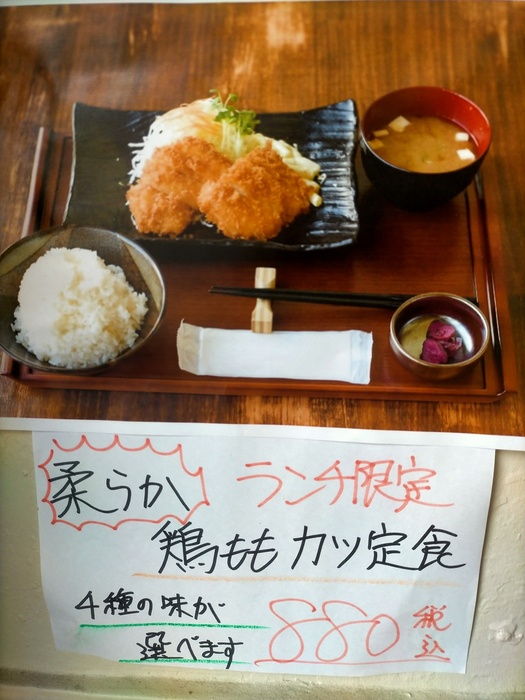 柔らか ランチ限定
鶏ももカツ定食
4種の味が
選べます
880 税込